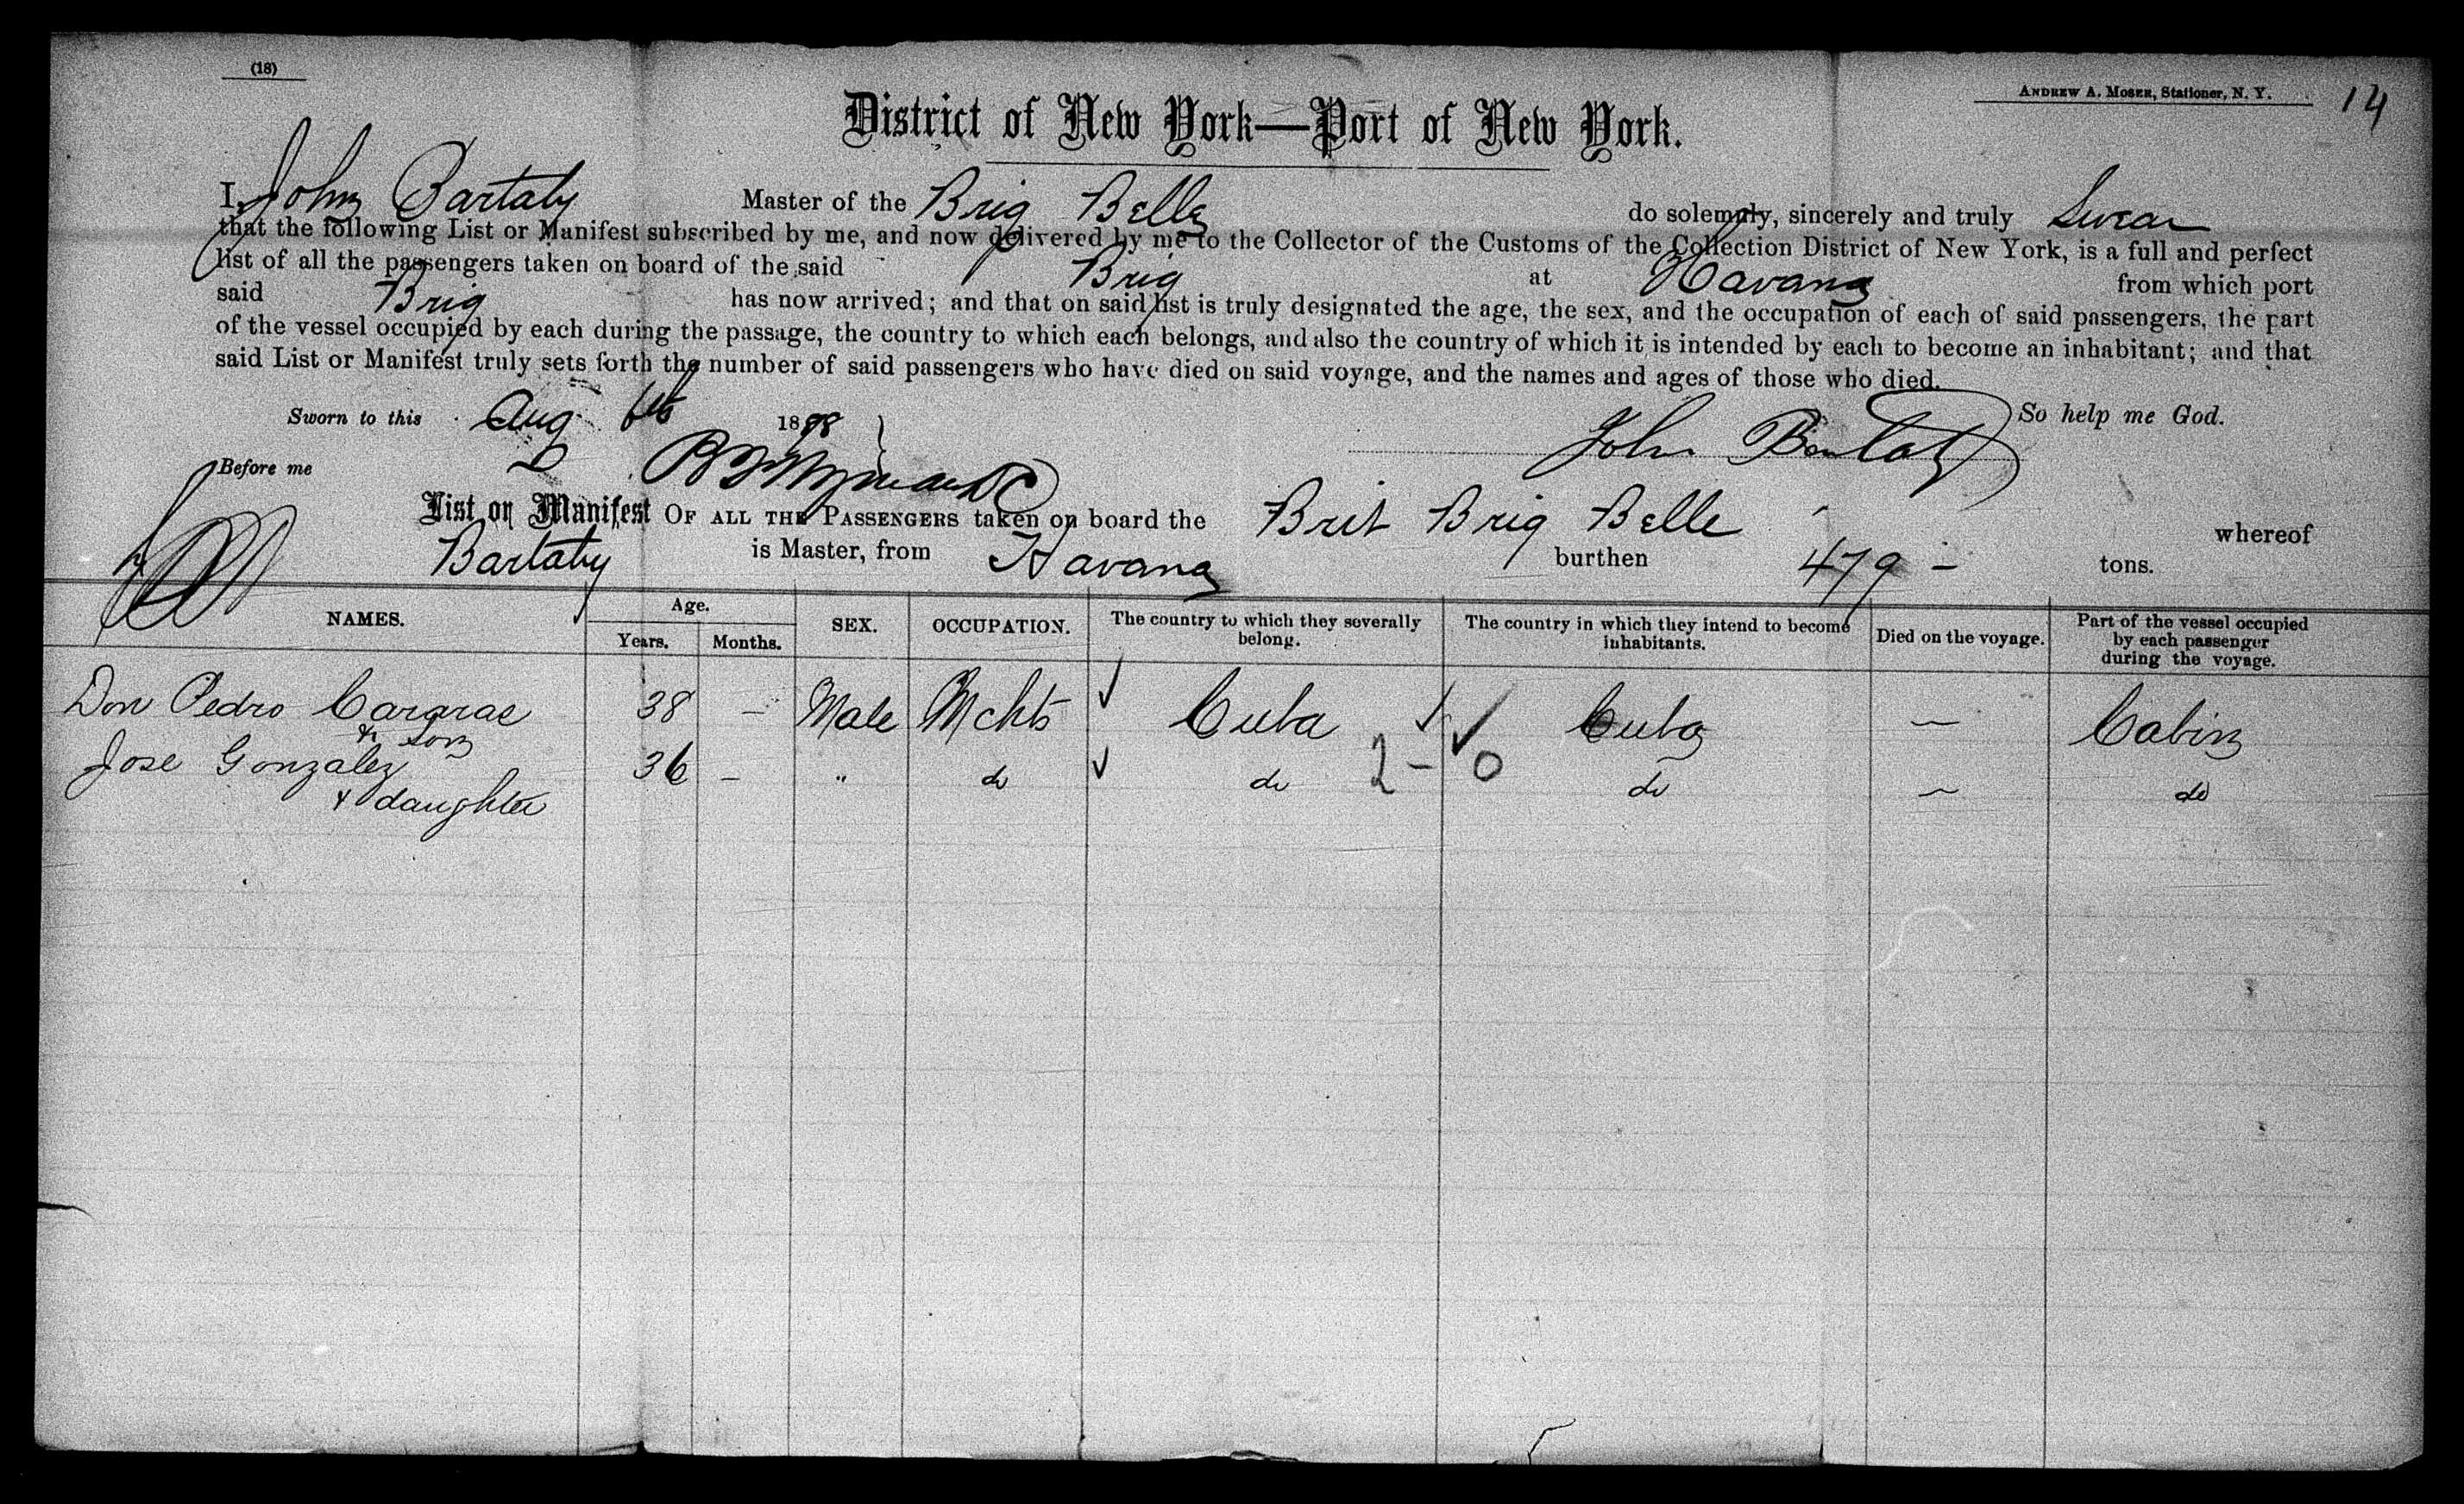 (18)
ANDREW A. MOSER, Stationer, N. Y. 14
District of New York—Port of New York.
I, John Bartaby Master of the Brig Belle do solemnly, sincerely and truly Swear
that the following List or Manifest subscribed by me, and now delivered by me to the Collector of the Customs of the Collection District of New York, is a full and perfect
list of all the passengers taken on board of the said Brig at Havana from which port
said Brig has now arrived; and that on said list is truly designated the age, the sex, and the occupation of each of said passengers, the part
of the vessel occupied by each during the passage, the country to which each belongs, and also the country of which it is intended by each to become an inhabitant; and that
said List or Manifest truly sets forth the number of said passengers who have died on said voyage, and the names and ages of those who died.
Sworn to this Aug 6th 18 So help me God.
Before me John
List or Manifest OF ALL THE PASSENGERS taken on board the Brit Brig Belle whereof
Bartaby is Master, from Havana burthen 479 - tons.
NAMES. Age. Years. Months. SEX. OCCUPATION. The country to which they severally belong. The country in which they intend to become inhabitants. Died on the voyage. Part of the vessel occupied by each passenger during the voyage.
Don Pedro Cararas 38 — Male Mchts ✓ Cuba ✓ ✓ Cuba — Cabin
& Son
Jose Gonzalez 36 — " do ✓ do 2 - 0 do — do
& daughter